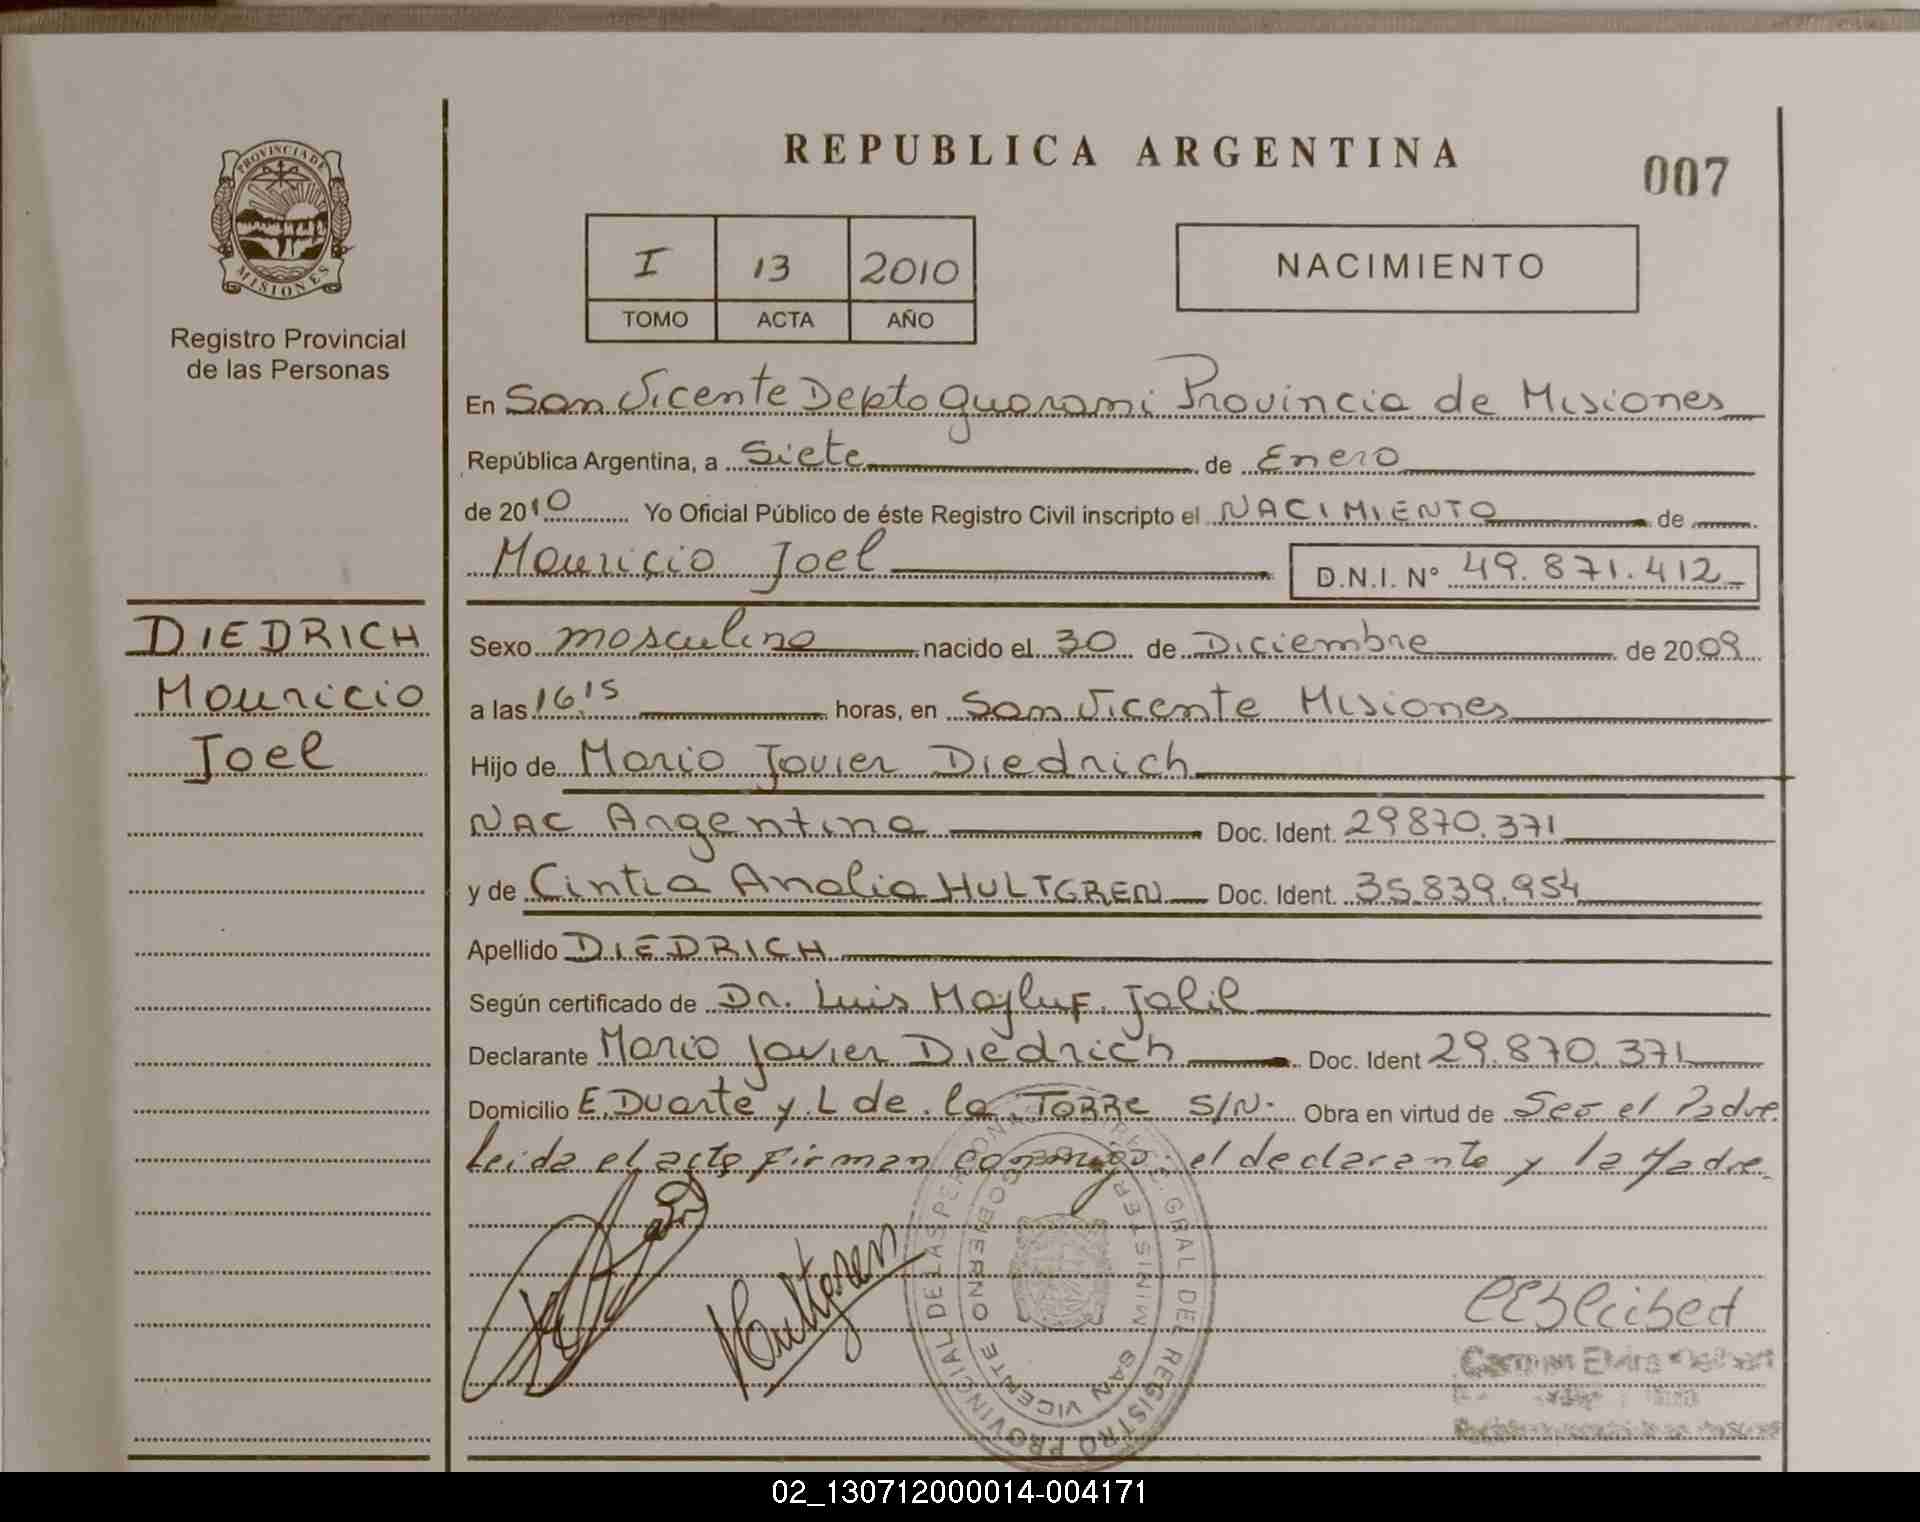 REPUBLICA ARGENTINA
007
PROVINCIA DE
MISIONES
Registro Provincial
de las Personas
I 13 2010
TOMO ACTA AÑO
NACIMIENTO
En San Vicente Depto Guarani Provincia de Misiones
República Argentina, a Siete de Enero
de 2010 Yo Oficial Público de éste Registro Civil inscripto el NACIMIENTO de
Mauricio Joel D.N.I. Nº 49.871.412
DIEDRICH
Mauricio
Joel
Sexo masculino nacido el 30 de Diciembre de 2009
a las 16:15 horas, en San Vicente Misiones
Hijo de Mario Javier Diedrich
NAC Argentina Doc. Ident. 29870.371
y de Cintia Analia HULTGREN Doc. Ident. 35.839.954
Apellido DIEDRICH
Según certificado de Dr. Luis Majluf Jalil
Declarante Mario Javier Diedrich Doc. Ident 29.870.371
Domicilio E. Duarte y L de la TORRE S/N. Obra en virtud de Ser el Padre
Leida el acta firman conmigo el declarante y la Madre
Hultgren
GRAL DEL REGISTRO PROVINCIAL DE LAS PERSONAS
GOBIERNO
SAN VICENTE
02_130712000014-004171